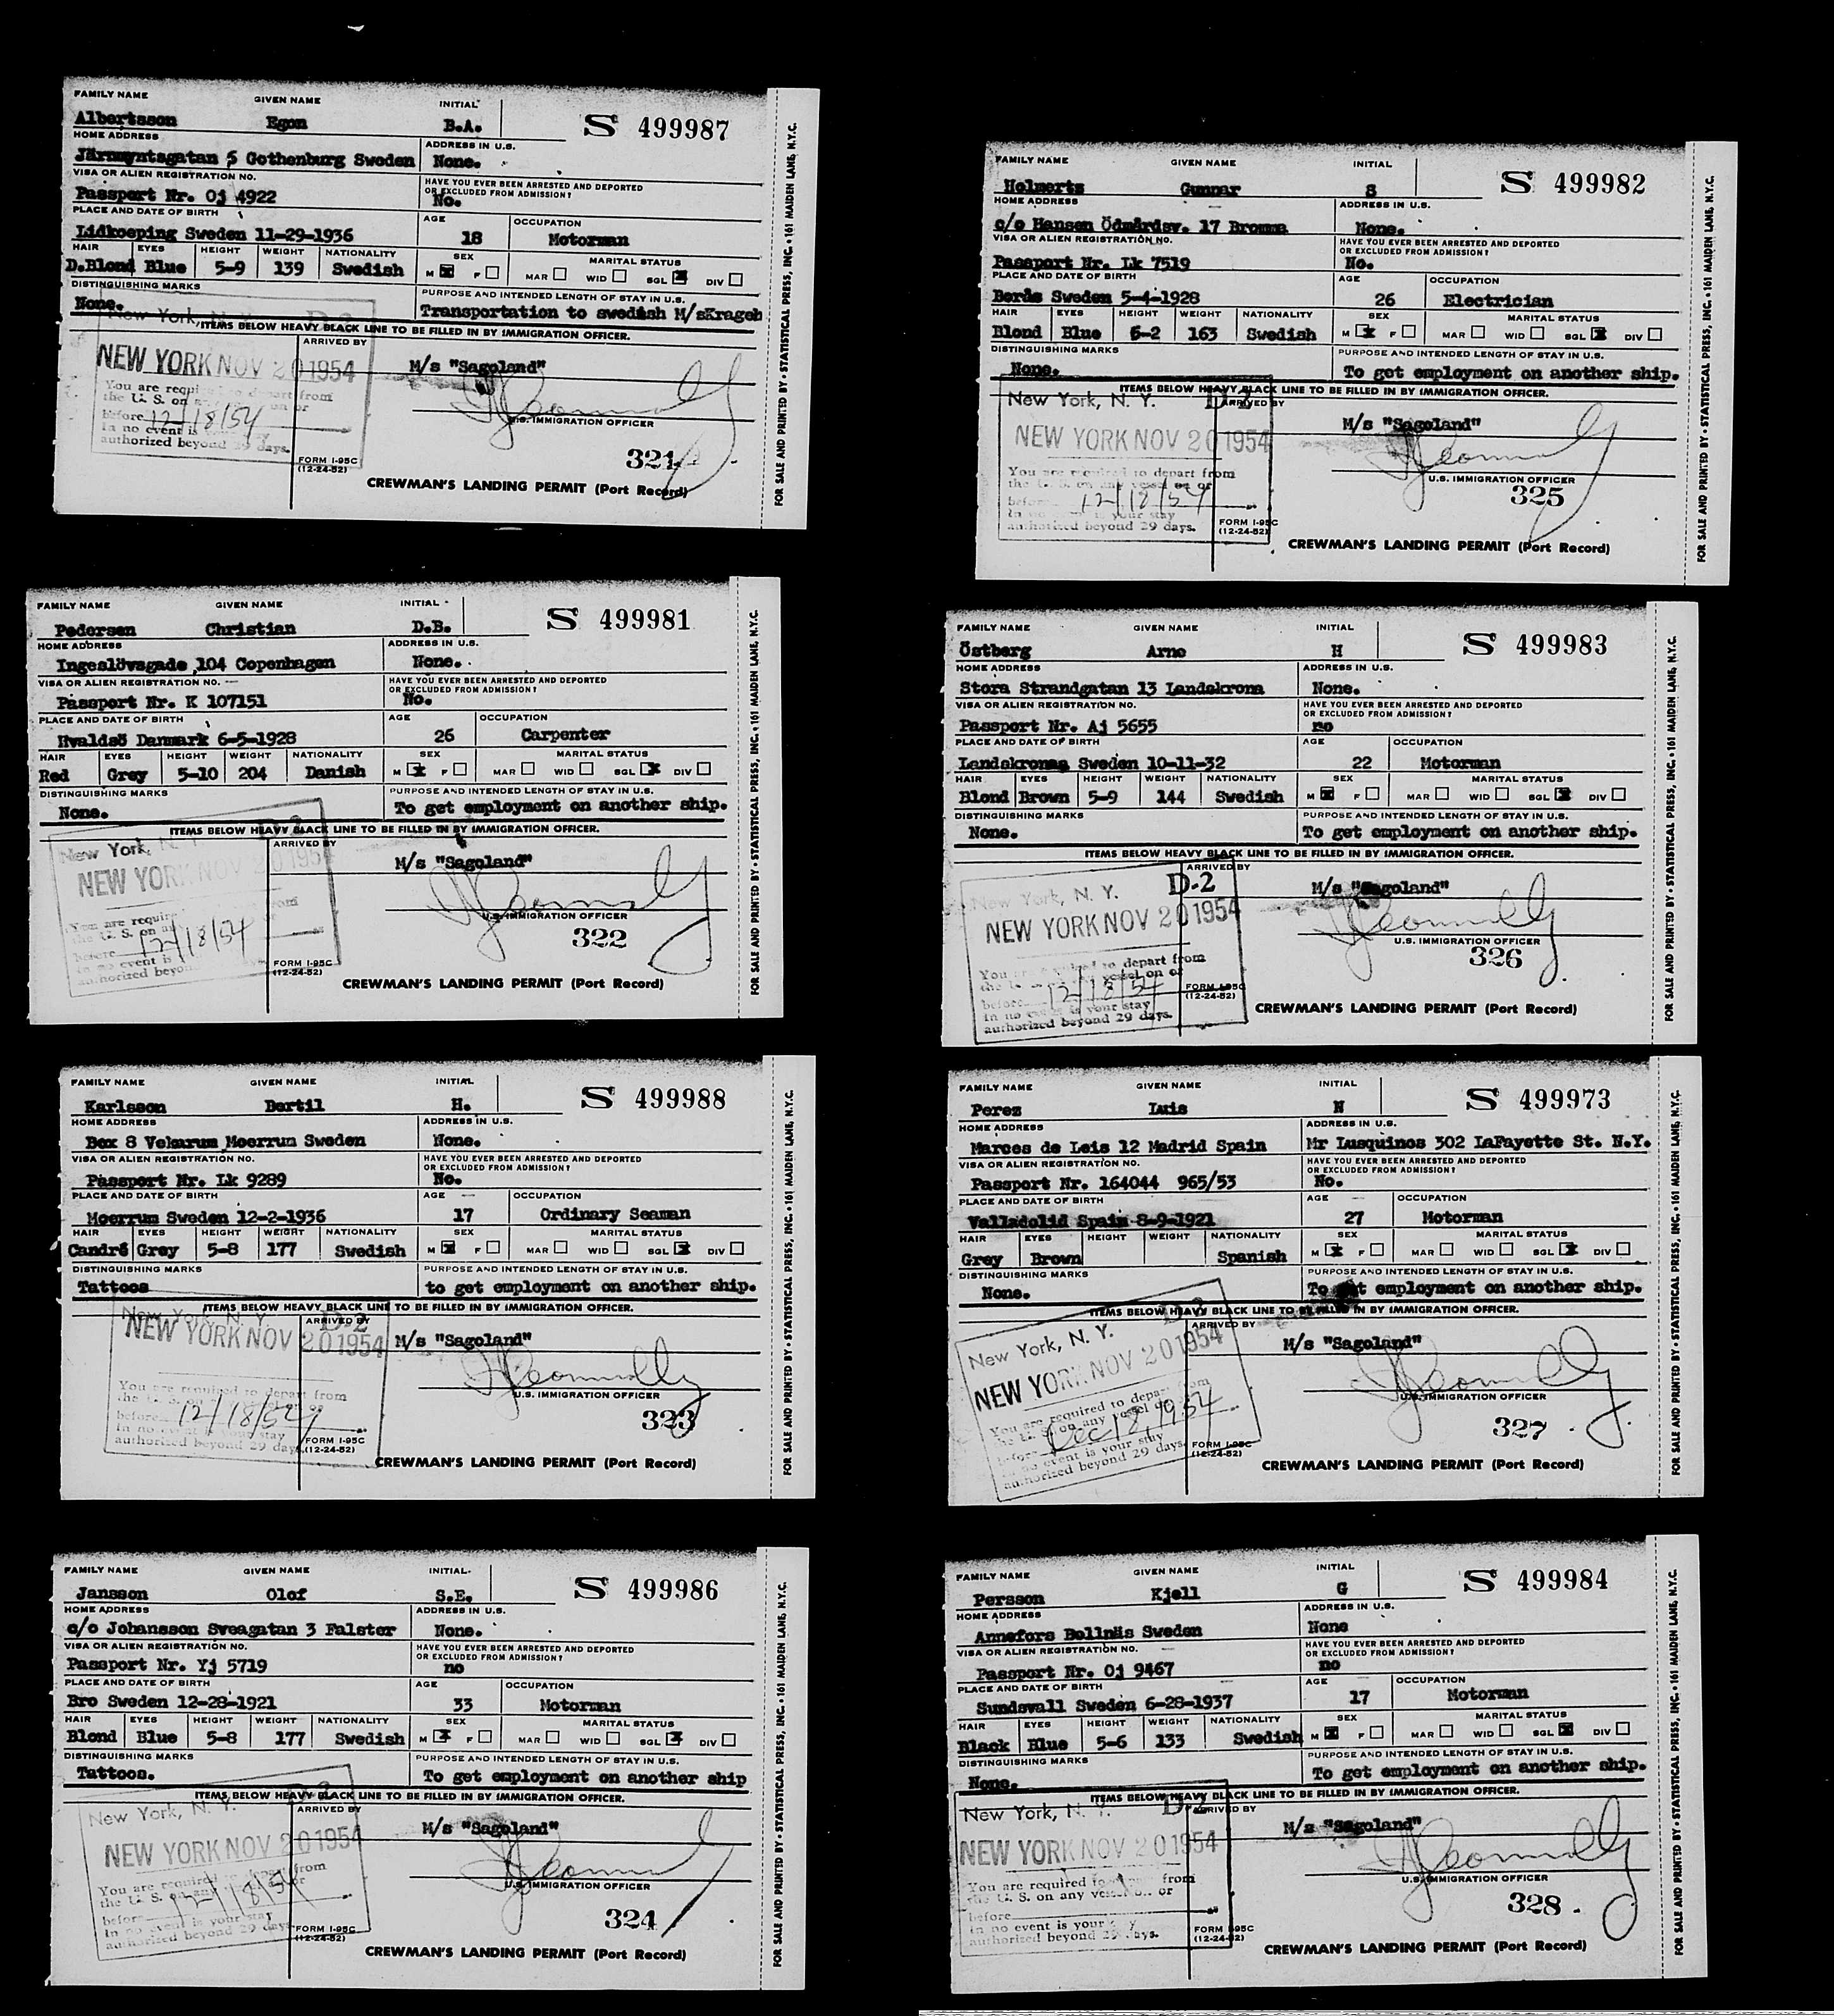 FAMILY NAME GIVEN NAME INITIAL
Albertsson Egon B.A. S 499987
HOME ADDRESS ADDRESS IN U.S.
Järnmyntsgatan 5 Gothenburg Sweden None.
VISA OR ALIEN REGISTRATION NO. HAVE YOU EVER BEEN ARRESTED AND DEPORTED OR EXCLUDED FROM ADMISSION?
Passport Nr. Oj 4922 No.
PLACE AND DATE OF BIRTH AGE OCCUPATION
Lidkoeping Sweden 11-29-1936 18 Motorman
HAIR EYES HEIGHT WEIGHT NATIONALITY SEX MARITAL STATUS
D.Blond Blue 5-9 139 Swedish M X F MAR WID SGL X DIV
DISTINGUISHING MARKS PURPOSE AND INTENDED LENGTH OF STAY IN U.S.
None. Transportation to swedish M/sKrageh
ITEMS BELOW HEAVY BLACK LINE TO BE FILLED IN BY IMMIGRATION OFFICER.
New York, D-2
ARRIVED BY
NEW YORK NOV 20 1954 M/s "Sagoland"
You are requi depart from
the U. S. on a on or
before 12/18/54
In no event is
authorized beyond 29 days.
U.S. IMMIGRATION OFFICER
321
FORM I-95C
(12-24-52)
CREWMAN'S LANDING PERMIT (Port Record)
FOR SALE AND PRINTED BY • STATISTICAL PRESS, INC. • 161 MAIDEN LANE, N.Y.C.
FAMILY NAME GIVEN NAME INITIAL
Pedersen Christian D.B. S 499981
HOME ADDRESS ADDRESS IN U.S.
Ingeslövsgade 104 Copenhagen None.
VISA OR ALIEN REGISTRATION NO. HAVE YOU EVER BEEN ARRESTED AND DEPORTED OR EXCLUDED FROM ADMISSION?
Passport Nr. K 107151 No.
PLACE AND DATE OF BIRTH AGE OCCUPATION
Hvaldsö Danmark 6-5-1928 26 Carpenter
HAIR EYES HEIGHT WEIGHT NATIONALITY SEX MARITAL STATUS
Red Grey 5-10 204 Danish M X F MAR WID SGL X DIV
DISTINGUISHING MARKS PURPOSE AND INTENDED LENGTH OF STAY IN U.S.
None. To get employment on another ship.
ITEMS BELOW HEAVY BLACK LINE TO BE FILLED IN BY IMMIGRATION OFFICER.
New York, N. Y. D-2
ARRIVED BY
NEW YORK NOV 20 1954 M/s "Sagoland"
You are requir from
the U. S. on an
before 12/18/54
In no event is
authorized beyon
U.S. IMMIGRATION OFFICER
322
FORM I-95C
(12-24-52)
CREWMAN'S LANDING PERMIT (Port Record)
FOR SALE AND PRINTED BY • STATISTICAL PRESS, INC. • 161 MAIDEN LANE, N.Y.C.
FAMILY NAME GIVEN NAME INITIAL
Karlsson Bertil H. S 499988
HOME ADDRESS ADDRESS IN U.S.
Box 8 Vekarum Moerrum Sweden None.
VISA OR ALIEN REGISTRATION NO. HAVE YOU EVER BEEN ARRESTED AND DEPORTED OR EXCLUDED FROM ADMISSION?
Passport Nr. Lk 9289 No.
PLACE AND DATE OF BIRTH AGE OCCUPATION
Moerrum Sweden 12-2-1936 17 Ordinary Seaman
HAIR EYES HEIGHT WEIGHT NATIONALITY SEX MARITAL STATUS
Candré Grey 5-8 177 Swedish M X F MAR WID SGL X DIV
DISTINGUISHING MARKS PURPOSE AND INTENDED LENGTH OF STAY IN U.S.
Tattoos to get employment on another ship.
ITEMS BELOW HEAVY BLACK LINE TO BE FILLED IN BY IMMIGRATION OFFICER.
New York, N. Y. D-2
ARRIVED BY
NEW YORK NOV 20 1954 M/s "Sagoland"
You are required to depart from
the U. S. on or
before 12/18/54
In no event is your stay
authorized beyond 29 days.
U.S. IMMIGRATION OFFICER
323
FORM I-95C
(12-24-52)
CREWMAN'S LANDING PERMIT (Port Record)
FOR SALE AND PRINTED BY • STATISTICAL PRESS, INC. • 161 MAIDEN LANE, N.Y.C.
FAMILY NAME GIVEN NAME INITIAL
Jansson Olof S.E. S 499986
HOME ADDRESS ADDRESS IN U.S.
c/o Johansson Sveagatan 3 Falster None.
VISA OR ALIEN REGISTRATION NO. HAVE YOU EVER BEEN ARRESTED AND DEPORTED OR EXCLUDED FROM ADMISSION?
Passport Nr. Yj 5719 no
PLACE AND DATE OF BIRTH AGE OCCUPATION
Bro Sweden 12-28-1921 33 Motorman
HAIR EYES HEIGHT WEIGHT NATIONALITY SEX MARITAL STATUS
Blond Blue 5-8 177 Swedish M X F MAR WID SGL X DIV
DISTINGUISHING MARKS PURPOSE AND INTENDED LENGTH OF STAY IN U.S.
Tattoos. To get employment on another ship
ITEMS BELOW HEAVY BLACK LINE TO BE FILLED IN BY IMMIGRATION OFFICER.
New York, N. Y. D-2
ARRIVED BY
NEW YORK NOV 20 1954 M/s "Sagoland"
You are required from
the U. S. on any or
before 12/18/54
In no event is your stay
authorized beyond 29 days
U.S. IMMIGRATION OFFICER
324
FORM I-95C
(12-24-52)
CREWMAN'S LANDING PERMIT (Port Record)
FOR SALE AND PRINTED BY • STATISTICAL PRESS, INC. • 161 MAIDEN LANE, N.Y.C.
FAMILY NAME GIVEN NAME INITIAL
Holmerts Gunnar S S 499982
HOME ADDRESS ADDRESS IN U.S.
c/o Hansen Ödmårdsv. 17 Bromma None.
VISA OR ALIEN REGISTRATION NO. HAVE YOU EVER BEEN ARRESTED AND DEPORTED OR EXCLUDED FROM ADMISSION?
Passport Nr. Lk 7519 No.
PLACE AND DATE OF BIRTH AGE OCCUPATION
Borås Sweden 5-4-1928 26 Electrician
HAIR EYES HEIGHT WEIGHT NATIONALITY SEX MARITAL STATUS
Blond Blue 6-2 163 Swedish M X F MAR WID SGL X DIV
DISTINGUISHING MARKS PURPOSE AND INTENDED LENGTH OF STAY IN U.S.
None. To get employment on another ship.
ITEMS BELOW HEAVY BLACK LINE TO BE FILLED IN BY IMMIGRATION OFFICER.
New York, N. Y. D-2
ARRIVED BY
NEW YORK NOV 20 1954 M/s "Sagoland"
You are required to depart from
the U. S. on any vessel on or
before 12/18/54
In no is your stay
authorized beyond 29 days.
U.S. IMMIGRATION OFFICER
325
FORM I-95C
(12-24-52)
CREWMAN'S LANDING PERMIT (Port Record)
FOR SALE AND PRINTED BY • STATISTICAL PRESS, INC. • 161 MAIDEN LANE, N.Y.C.
FAMILY NAME GIVEN NAME INITIAL
Östberg Arne H S 499983
HOME ADDRESS ADDRESS IN U.S.
Stora Strandgatan 13 Landskrona None.
VISA OR ALIEN REGISTRATION NO. HAVE YOU EVER BEEN ARRESTED AND DEPORTED OR EXCLUDED FROM ADMISSION?
Passport Nr. Aj 5655 no
PLACE AND DATE OF BIRTH AGE OCCUPATION
Landskrona Sweden 10-11-32 22 Motorman
HAIR EYES HEIGHT WEIGHT NATIONALITY SEX MARITAL STATUS
Blond Brown 5-9 144 Swedish M X F MAR WID SGL X DIV
DISTINGUISHING MARKS PURPOSE AND INTENDED LENGTH OF STAY IN U.S.
None. To get employment on another ship.
ITEMS BELOW HEAVY BLACK LINE TO BE FILLED IN BY IMMIGRATION OFFICER.
New York, N. Y. D-2
ARRIVED BY
NEW YORK NOV 20 1954 M/s "Sagoland"
You are required to depart from
the U. S. vessel on or
before 12/18/54
In no event is your stay
authorized beyond 29 days.
U.S. IMMIGRATION OFFICER
326
FORM I-95C
(12-24-52)
CREWMAN'S LANDING PERMIT (Port Record)
FOR SALE AND PRINTED BY • STATISTICAL PRESS, INC. • 161 MAIDEN LANE, N.Y.C.
FAMILY NAME GIVEN NAME INITIAL
Perez Luis N S 499973
HOME ADDRESS ADDRESS IN U.S.
Marces de Leis 12 Madrid Spain Mr Lusquinos 302 LaFayette St. N.Y.
VISA OR ALIEN REGISTRATION NO. HAVE YOU EVER BEEN ARRESTED AND DEPORTED OR EXCLUDED FROM ADMISSION?
Passport Nr. 164044 965/53 No.
PLACE AND DATE OF BIRTH AGE OCCUPATION
Valladolid Spain 8-9-1921 27 Motorman
HAIR EYES HEIGHT WEIGHT NATIONALITY SEX MARITAL STATUS
Grey Brown Spanish M X F MAR WID SGL X DIV
DISTINGUISHING MARKS PURPOSE AND INTENDED LENGTH OF STAY IN U.S.
None. To get employment on another ship.
ITEMS BELOW HEAVY BLACK LINE TO BE FILLED IN BY IMMIGRATION OFFICER.
New York, N. Y. D-2
ARRIVED BY
NEW YORK NOV 20 1954 M/s "Sagoland"
You are required to depart from
the U. S. on any vessel on or
before Dec 18, 1954
In no event is your stay
authorized beyond 29 days.
U.S. IMMIGRATION OFFICER
327
FORM I-95C
(12-24-52)
CREWMAN'S LANDING PERMIT (Port Record)
FOR SALE AND PRINTED BY • STATISTICAL PRESS, INC. • 161 MAIDEN LANE, N.Y.C.
FAMILY NAME GIVEN NAME INITIAL
Persson Kjell G S 499984
HOME ADDRESS ADDRESS IN U.S.
Annefors Bollnäs Sweden None
VISA OR ALIEN REGISTRATION NO. HAVE YOU EVER BEEN ARRESTED AND DEPORTED OR EXCLUDED FROM ADMISSION?
Passport Nr. Oj 9467 no
PLACE AND DATE OF BIRTH AGE OCCUPATION
Sundsvall Sweden 6-28-1937 17 Motorman
HAIR EYES HEIGHT WEIGHT NATIONALITY SEX MARITAL STATUS
Black Blue 5-6 133 Swedish M X F MAR WID SGL X DIV
DISTINGUISHING MARKS PURPOSE AND INTENDED LENGTH OF STAY IN U.S.
None. To get employment on another ship.
ITEMS BELOW HEAVY BLACK LINE TO BE FILLED IN BY IMMIGRATION OFFICER.
New York, N. Y. D-2
ARRIVED BY
NEW YORK NOV 20 1954 M/s "Sagoland"
You are required to from
the U. S. on any vessel on or
before
In no event is your
authorized beyond 29 days.
U.S. IMMIGRATION OFFICER
328
FORM I-95C
(12-24-52)
CREWMAN'S LANDING PERMIT (Port Record)
FOR SALE AND PRINTED BY • STATISTICAL PRESS, INC. • 161 MAIDEN LANE, N.Y.C.